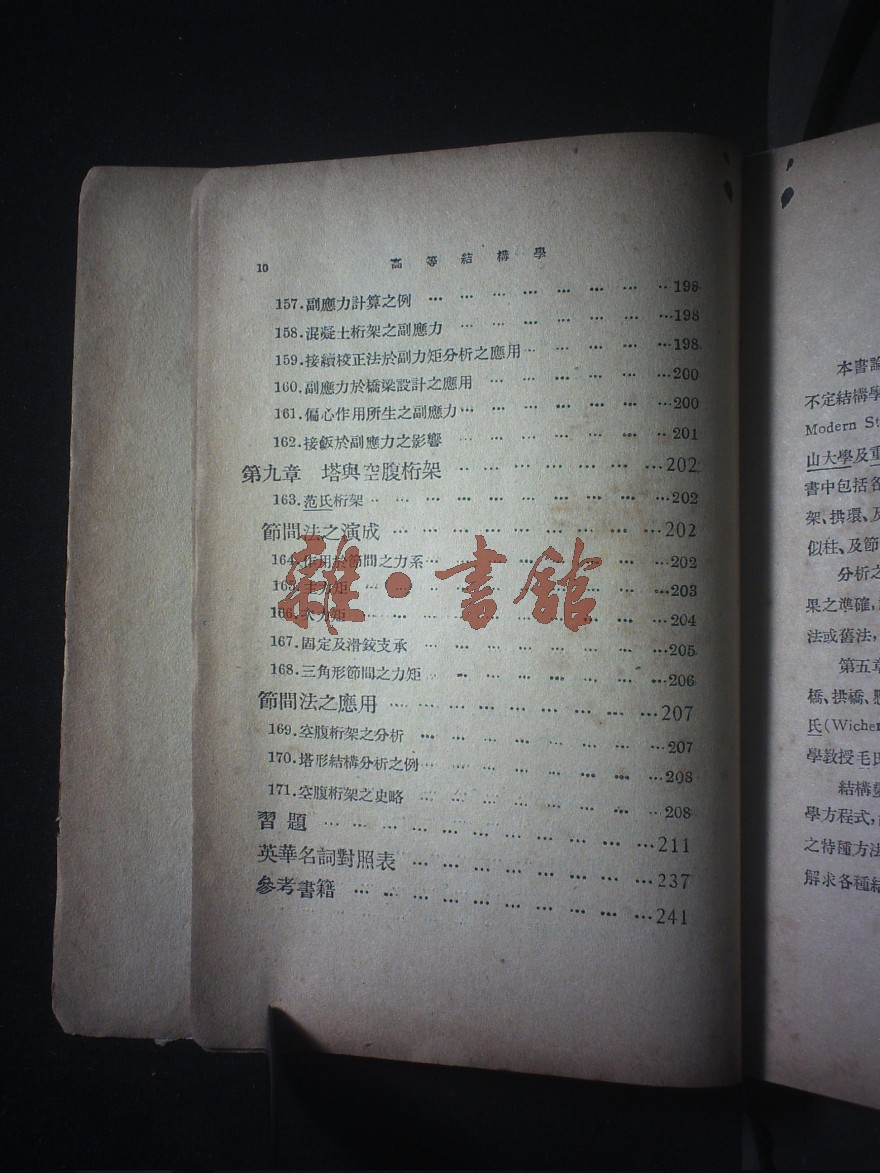 10 高等結構學
157.副應力計算之例 … … … … … … … …198
158.混凝土桁架之副應力 … … … … … … …198
159.接續校正法於副力矩分析之應用… … … … …198
160.副應力於橋梁設計之應用 … … … … … …200
161.偏心作用所生之副應力… … … … … … …200
162.接飯於副應力之影響 … … … … … … …201
第九章 塔與空腹桁架 … … … … … … …202
163.范氏桁架… … … … … … … … … …202
節間法之演成 … … … … … … … … …202
164.作用於節間之力系… … … … … … … …202
165.主力矩 … … … … … … … … … …203
166.次力矩 … … … … … … … … … …204
167.固定及滑鉸支承 … … … … … … … …205
168.三角形節間之力矩… … … … … … … …206
節間法之應用 … … … … … … … … …207
169.空腹桁架之分析 … … … … … … … …207
170.塔形結構分析之例… … … … … … … …208
171.空腹桁架之史略 … … … … … … … …208
習題 … … … … … … … … … … …211
英華名詞對照表 … … … … … … … …237
參考書籍 … … … … … … … … … …241
雜·書館
本書論
不定結構學
Modern St
山大學及重
書中包括各
架、拱環、及
似柱、及節
分析之
果之準確,
法或舊法,
第五章
橋、拱橋、懸
氏(Wicher
學教授毛氏
結構
學方程式,
之特種方法
解求各種結